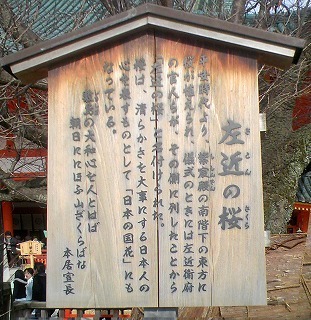 左近の桜
さこんのさくら
平安時代より、紫宸殿の南階下の東方に
桜が植えられ、儀式のときには左近衛府
の官人らが、その側に列したことから
「左近の桜」と名付けられた。
桜は、清らかさを大事にする日本人の
心を表すものとして、「日本の国花」にも
なっている。
敷島の大和心を人とはば
朝日ににほふ山ざくらばな
本居宣長